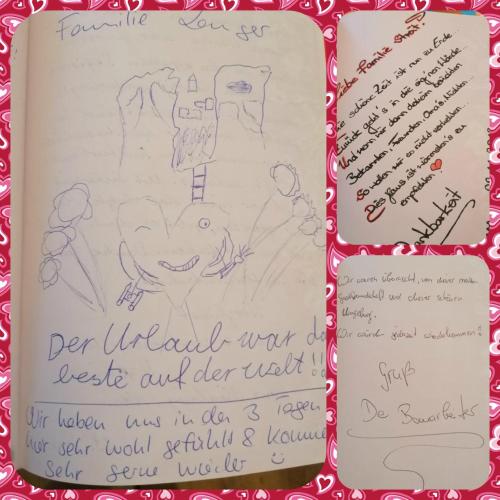 Familie Langer
Der Urlaub war da
beste auf der Welt!!
Wir haben uns in den 3 Tagen
hier sehr wohl gefühlt & komme
sehr gerne wieder
Liebe Familie Streit!
Die schöne Zeit ist nun zu Ende
Zurück geht's in die eig'nen Wände...
Und wenn wir dann daheim berichten
Bekannten, Freunden, Oma & Nichten...
So wollen wir es nicht verhehlen...
Dies Haus ist wärmstens zu
empfehlen.
Dankbarkeit
Wir waren überrascht, von dieser
und dieser schönen
Umgebung.
Wir würden jederzeit wiederkommen!!
Gruß
De Bauarbeiter